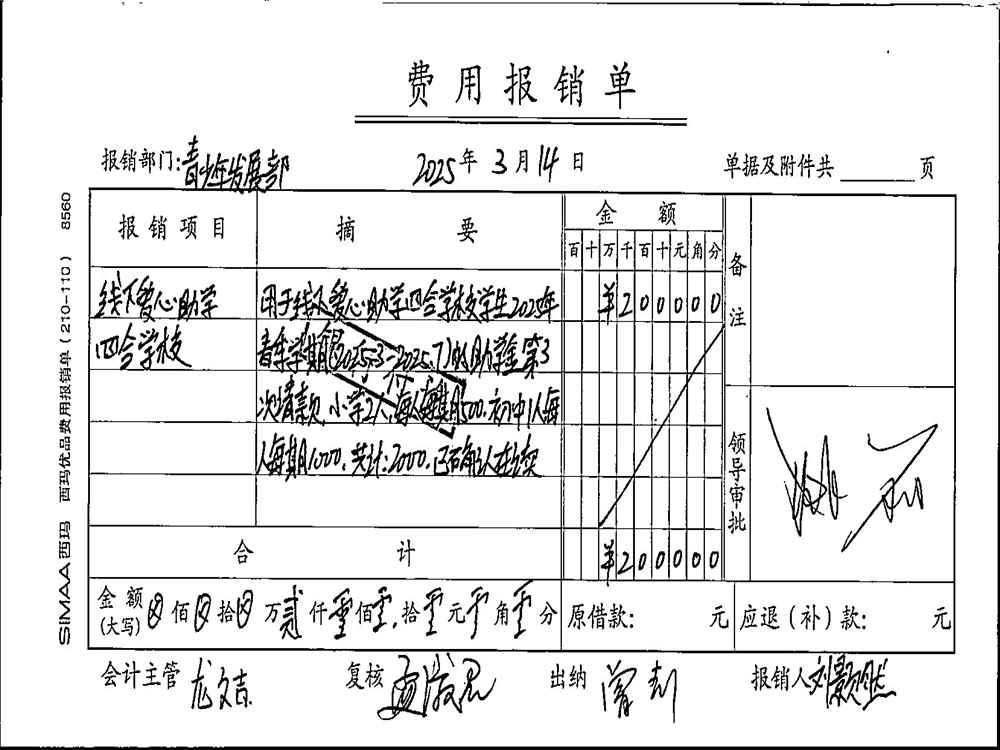 费用报销单
报销部门:青少年发展部 2025年3月14日 单据及附件共 页
报销项目 摘要 金额 备注
百 十 万 千 百 十 元 角 分
线下爱心助学 用于线下爱心助学四合学校学生2025年 ¥200000
四合学校 春季学期(2025.3-2025.7)的助学金第3
次请款,小学2人,每人每期500.初中1人每
人每期1000,共计:2000.已确认在读
领导审批
合计 ¥200000
金额(大写) 佰 拾 万贰仟零佰零拾零元零角零分 原借款: 元 应退(补)款: 元
会计主管 龙文吉 复核 出纳 曾 报销人 刘颢然
SIMAA西玛 西玛优品费用报销单(210-110) 8560